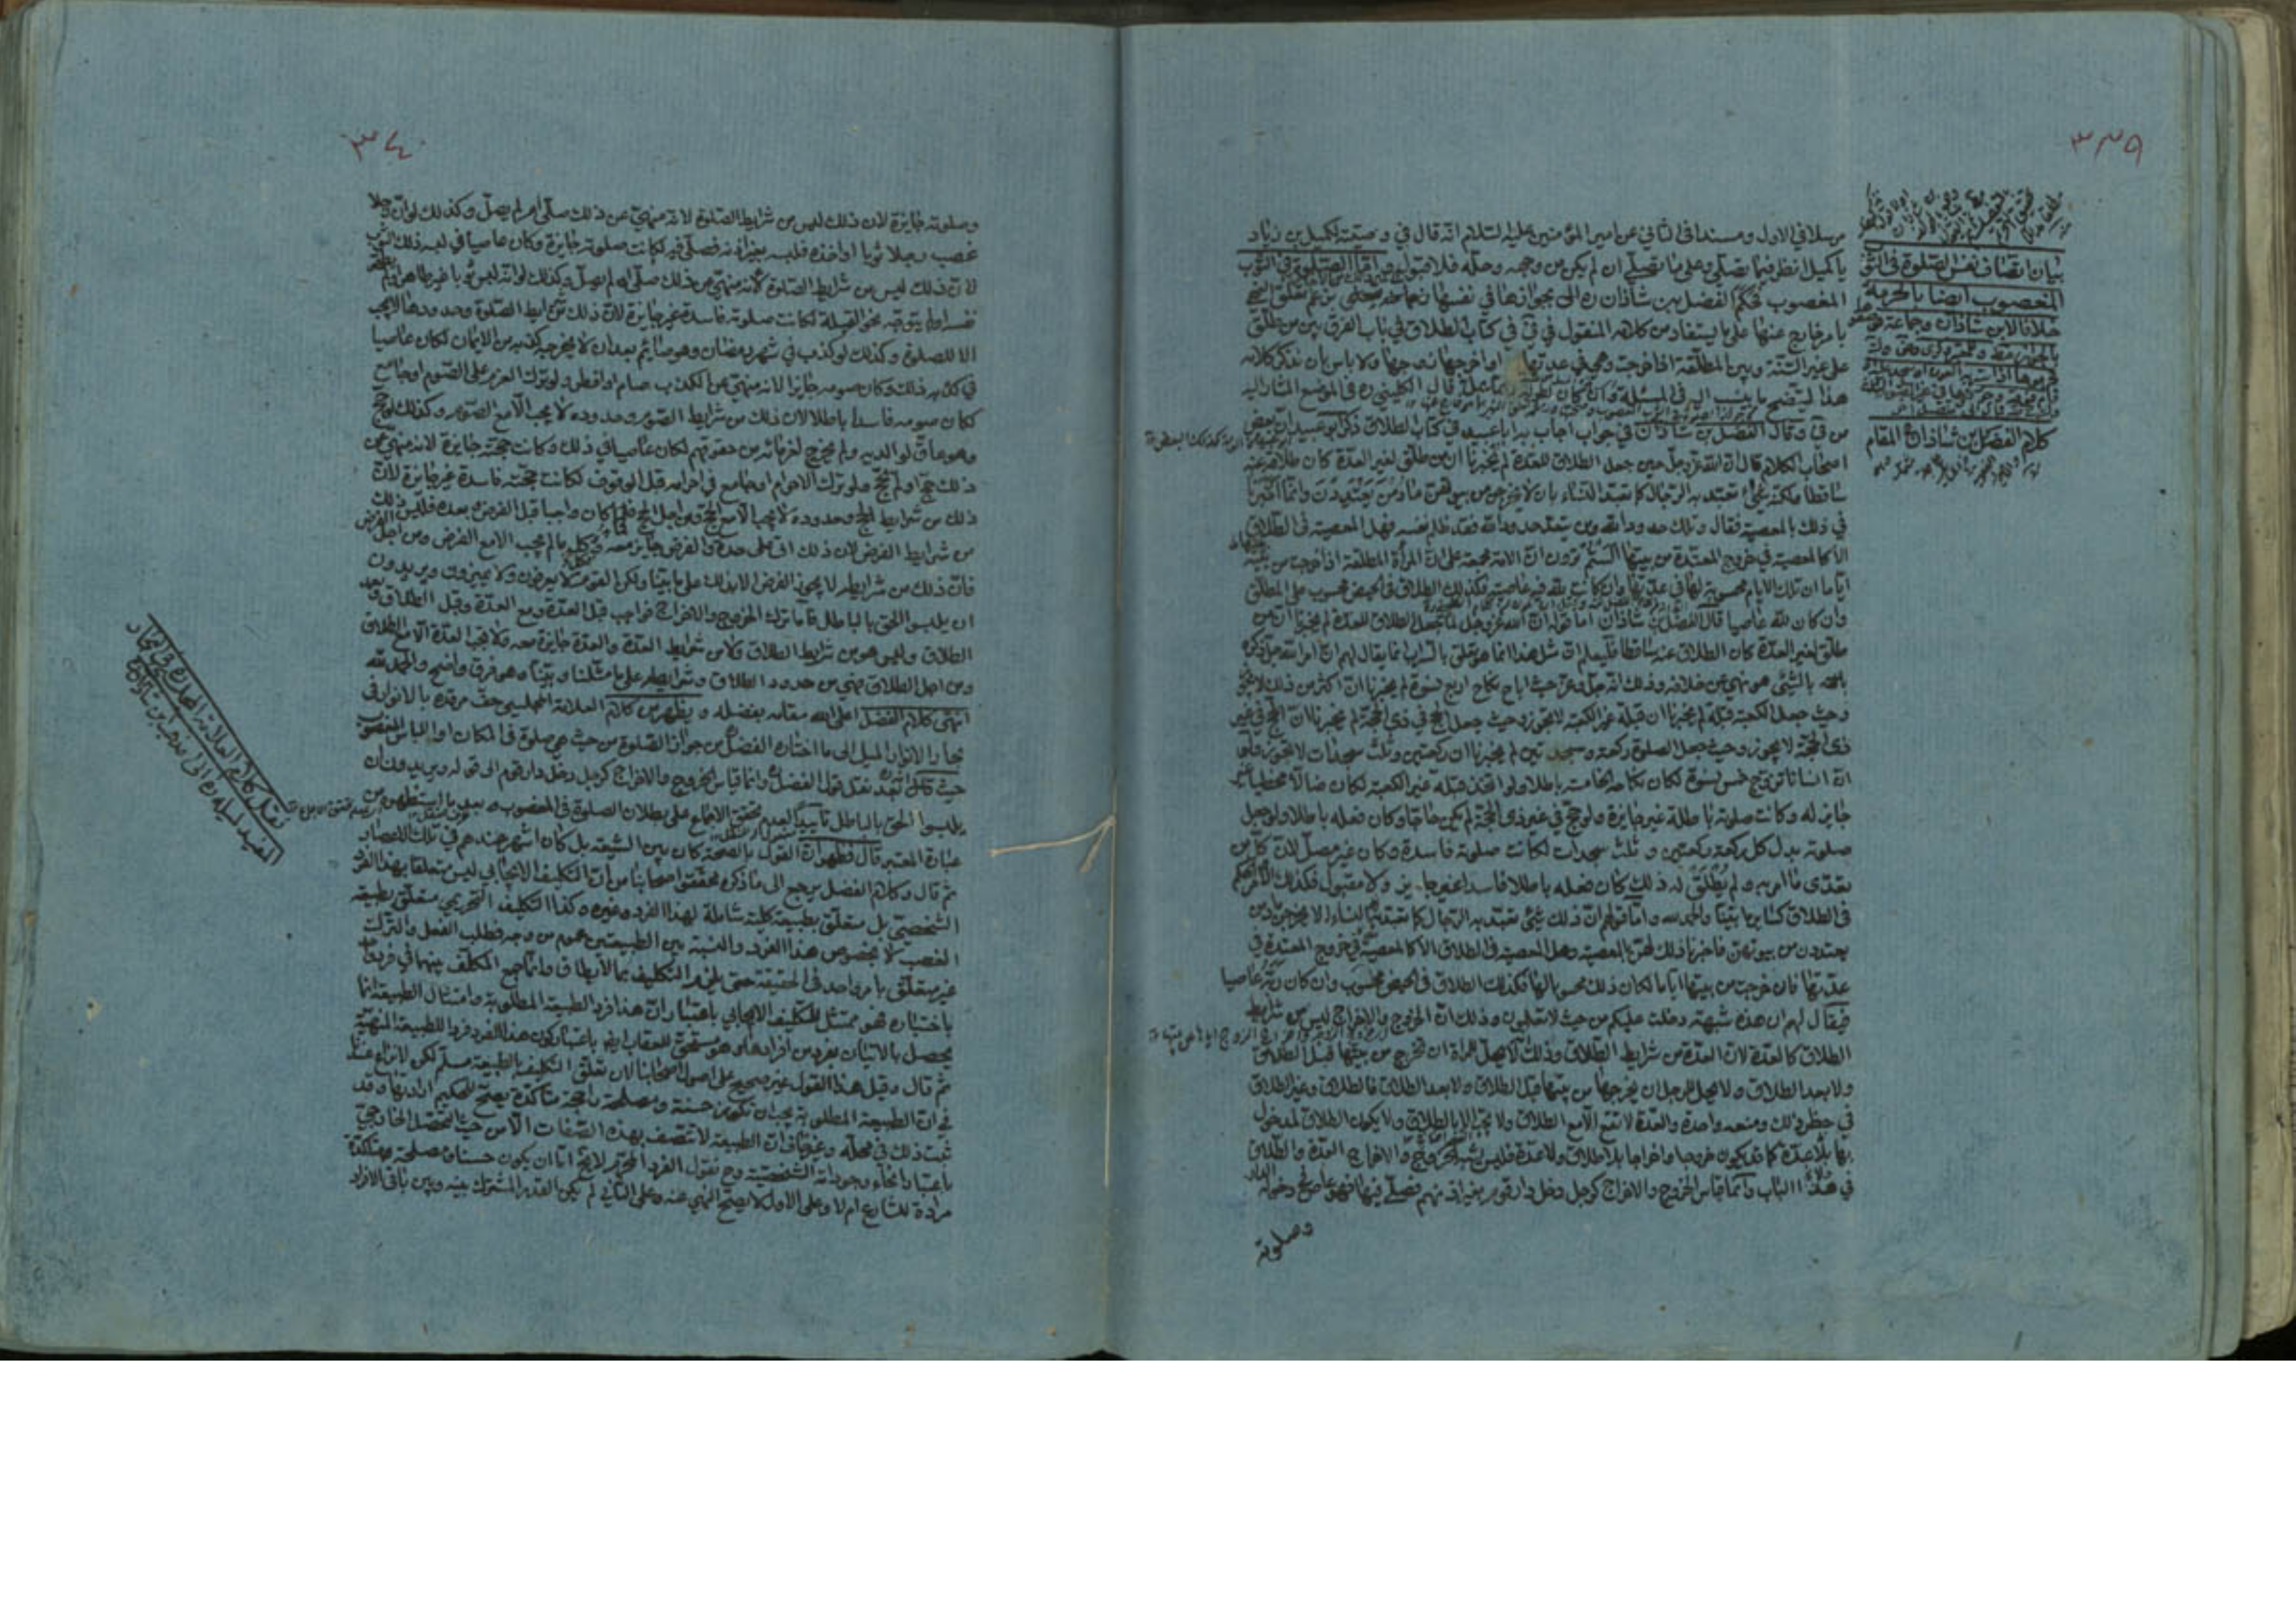 ٣٣٩
بيان اتصاف نفس الصلوة فى الثوب
المغصوب ايضا بالحرمة
خلافا لابن شاذان وجماعة
كلام الفضل بن شاذان فى المقام
مرسلا في الاول ومسندا فى الثاني عن امير المؤمنين عليه السلام انه قال في وصيته لكميل بن زياد
يا كميل انظر فيما تصلي وعلى ما تصلي ان لم يكن من وجهه وحله فلا قبول واما الصلوة في الثوب
المغصوب فحكم الفضل بن شاذان ره الى بجوازها في نفسها تعلق النهى
بامر خارج عنها على ما يستفاد من كلامه المنقول في في في كتاب الطلاق في باب الفرق بين من طلق
على غير السنة وبين المطلقة اذا خرجت وهي في عدتها او اخرجها زوجها ولا باس بان نذكر كلامه
هذا ليتضح ما ينسب اليه في المسئلة وان كان قال الكلينى ره فى الموضع المشار اليه
من في وقال الفضل بن شاذان في جواب اجاب به ابا عبيد في كتاب الطلاق ذكر ابو عبيد ان بعض
اصحاب الكلام قال ان الله عز وجل حين جعل الطلاق للعدة لم يخبرنا ان من طلق لغير العدة كان طلاقه عنه
ساقطا ولكنه شئ تعبد به الرجال كما تعبد النساء بان لا يخرجن من بيوتهن ما دمن يعتددن وانما اخبرنا
في ذلك بالمعصية فقال وتلك حدود الله ومن يتعد حدود الله فقد ظلم نفسه فهل المعصية فى الطلاق
الا كالمعصية في خروج المعتدة من بيتها الستم ترون ان الامة مجمعة على ان المراة المطلقة اذا خرجت من بيتها
اياما ان تلك الايام محسوبة لها في عدتها وان كانت لله فيه عاصية فكذلك الطلاق في الحيض محسوب على المطلق
وان كان لله عاصيا قال الفضل بن شاذان اما قوله ان الله عز وجل لما جعل الطلاق للعدة لم يخبرنا ان من
طلق لغير العدة كان الطلاق عنه ساقطا فليعلم ان مثل هذا انما هو تعلق بالسراب انما يقال لهم ان امر الله جل ذكره
بالشئ هو نهي عن خلافه وذلك انه جل وعز حيث اباح نكاح اربع نسوة لم يخبرنا ان اكثر من ذلك لا يجوز
وحيث جعل الكعبة قبلة لم يخبرنا ان قبلة غير الكعبة لا تجوز وحيث جعل الحج في ذي الحجة لم يخبرنا ان الحج في غير
ذى الحجة لا يجوز وحيث جعل الصلوة ركعة وسجدتين لم يخبرنا ان ركعتين وثلث سجدات لا تجوز فلو
ان انسانا تزوج خمس نسوة لكان نكاحه الخامسة باطلا ولو اتخذ قبلة غير الكعبة لكان ضالا مخطئا غير
جايز له وكانت صلوته باطلة غير جايزة ولو حج في غير ذى الحجة لم يكن حاجا وكان فعله باطلا ولو جعل
صلوته بدل كل ركعة ركعتين وثلث سجدات لكانت صلوته فاسدة وكان غير مصل لان كل من
تعدى ما امر به ولم يطلق له ذلك كان فعله باطلا فاسدا غير جايز ولا مقبول فكذلك الامر والحكم
فى الطلاق كساير ما بينا والحمد لله واما قولهم ان ذلك شئ تعبد به الرجال كما تعبد به النساء ان لا يخرجن ما دمن
يعتددن من بيوتهن فاخبرنا ذلك لهن بالمعصية وهل المعصية فى الطلاق الا كالمعصية في خروج المعتدة في
عدتها فان خرجت من بيتها اياما لكان ذلك محسوبا لها فكذلك الطلاق فى الحيض محسوب وان كان لله عاصيا
فيقال لهم ان هذه شبهة دخلت عليكم من حيث لا تعلمون وذلك ان الخروج والاخراج ليس من شرايط
الطلاق كالعدة لان العدة من شرايط الطلاق وذلك انه لا يحل للمراة ان تخرج من بيتها قبل الطلاق
ولا بعد الطلاق ولا يحل للرجل ان يخرجها من بيتها قبل الطلاق ولا بعد الطلاق فالطلاق وغير الطلاق
في حظر ذلك ومنعه واحد والعدة لا تقع الا مع الطلاق ولا تجب الا بالطلاق ولا يكون الطلاق لمدخول
بها بلا عدة كما قد يكون خروجا واخراجا بلا طلاق ولا عدة فليس يشبه الخروج والاخراج العدة والطلاق
في هذا الباب وانما قياس الخروج والاخراج كرجل دخل دار قوم بغير اذنهم فصلى فيها فهو عاص في دخوله الدار
وصلوته
٣٤٠
وصلوته جايزة لان ذلك ليس من شرايط الصلوة لانه منهي عن ذلك صلى ام لم يصل وكذلك لو ان رجلا
غصب رجلا ثوبا او اخذه فلبسه بغير اذنه فصلى فيه لكانت صلوته جايزة وكان عاصيا في لبسه ذلك الثوب
لان ذلك ليس من شرايط الصلوة لانه منهي عن ذلك صلى ام لم يصل وكذلك لو انه لبس ثوبا غير طاهر او لم يطهر
نفسه او لم يتوجه نحو القبلة لكانت صلوته فاسدة غير جايزة لان ذلك من شرايط الصلوة وحدودها لا يجب
الا للصلوة وكذلك لو كذب في شهر رمضان وهو صايم بعد ان لا يخرجه كذبه من الايمان لكان عاصيا
في كذبه ذلك وكان صومه جايزا لانه منهي عن الكذب صام او افطر ولو ترك العزم على الصوم او جامع
لكان صومه فاسدا باطلا لان ذلك من شرايط الصوم وحدوده لا يجب الا مع الصوم وكذلك لو حج
وهو عاق لوالديه ولم يخرج لغرمائه من حقوقهم لكان عاصيا في ذلك وكانت حجته جايزة لانه منهي عن
ذلك حج او لم يحج ولو ترك الاحرام او جامع في احرامه قبل الوقوف لكانت حجته فاسدة غير جايزة لان
ذلك من شرايط الحج وحدوده لا يجب الا مع الحج ومن اجل الحج فكلما كان واجبا قبل الفرض وبعده فليس ذلك
من شرايط الفرض لان ذلك اتى على حدة والفرض جايز معه فكل ما لم يجب الا مع الفرض ومن اجل الفرض
فان ذلك من شرايطه لا يجوز الفرض الا بذلك على ما بينا ولكن القوم لا يعرفون ولا يميزون ويريدون
ان يلبسوا الحق بالباطل فاما ترك الخروج والاخراج فواجب قبل العدة ومع العدة وقبل الطلاق وبعد
الطلاق وليس هو من شرايط الطلاق ولا من شرايط العدة والعدة جايزة معه ولا تجب العدة الا مع الطلاق
ومن اجل الطلاق فهي من حدود الطلاق وشرايطه على ما مثلنا وبينا وهو فرق واضح والحمد لله
انتهى كلام الفضل اعلى الله مقامه بفضله ويظهر من كلام العلامة المجلسي حف مرقده بالانوار فى
بحار الانوار الميل الى ما اختاره الفضل من جواز الصلوة من حيث هي صلوة فى المكان او اللباس المغصوب
حيث قال بعد نقل قول الفضل وانما قياس الخروج والاخراج كرجل دخل دار قوم الى قوله ويريدون ان
يلبسوا الحق بالباطل تاييدا لعدم تحقق الاجماع على بطلان الصلوة فى المغصوب بعد ما استظهره من
عبارة المعتبر قال فظهر ان القول بالصحة كان بين الشيعة بل كان اشهر عندهم في تلك الاعصار
ثم قال وكلام الفضل يرجع الى ما ذكره محققوا اصحابنا من ان التكليف الايجابي ليس متعلقا بهذا الفرد
الشخصي بل متعلق بطبيعة كلية شاملة لهذا الفرد وغيره وكذا التكليف التحريمي متعلق بطبيعة
الغصب لا بخصوص هذا الفرد والنسبة بين الطبيعتين عموم من وجه فطلب الفعل والترك
غير متعلق بامر واحد فى الحقيقة حتى يلزم التكليف بما لا يطاق وانما جمع المكلف بينهما في فرد
باختياره فهو ممتثل للتكليف الايجابي باعتبار ان هذا فرد الطبيعة المطلوبة وامتثال الطبيعة انما
يحصل بالاتيان بفرد من افرادها وهو مستحق للعقاب ايضا باعتبار كون هذا الفرد فردا للطبيعة المنهية
ثم قال وقيل هذا القول غير صحيح على اصول اصحابنا لان تعلق التكليف بالطبيعة مسلم لكن لا نزاع عندنا
في ان الطبيعة المطلوبة يجب ان تكون حسنة ومصلحة راجحة متاكدة يصح للحكيم ارادتها وقد
ثبت ذلك في محله وغير خاف ان الطبيعة لا تتصف بهذه الصفات الا من حيث التحصل الخارجي
باعتبار انحاء وجوداته الشخصية وح نقول الفرد المحرم لا يخ اما ان يكون حسنا ومصلحة متاكدة
مرادة للشارع ام لا وعلى الاول لا يصح النهي عنه وعلى الثاني لم يكن القدر المشترك بينه وبين باقى الافراد
نقل كلام العلامة المجلسى فى البحار
المفيد لميله ره الى مذهب ابن شاذان